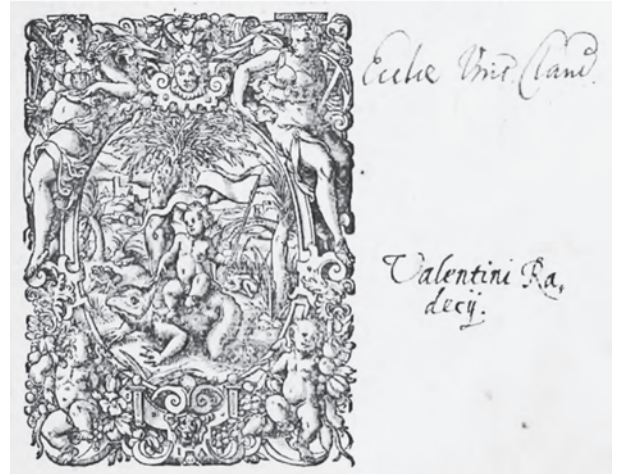 Ecclæ Unit. Claud.
Valentini Ra,
decij.